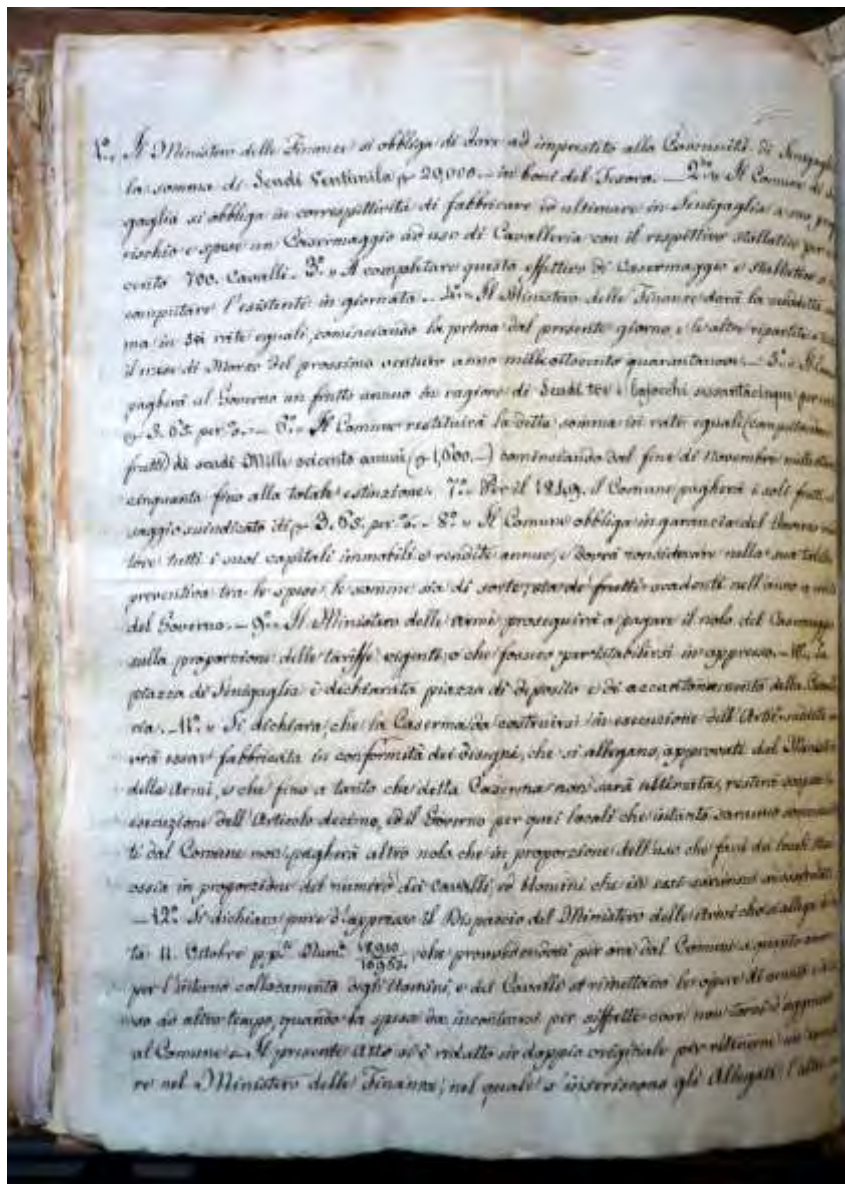 1º. Il Ministero delle Finanze si obbliga di dare ad imprestito alla Comunità di Senigaglia
la somma di Scudi Ventimila 20,000.— in boni del Tesoro. — 2º. Il Comune di
gaglia si obbliga in correspettività di fabbricare ed ultimare in Senigaglia a suo
rischio e spese un Casermaggio ad uso di Cavalleria con il respettivo stallatico per
cento 700. Cavalli. 3º. A completare questo effettivo di Casermaggio e
computare l'esistente in giornata. 4º. Il Ministero delle Finanze darà la
ma in sei rate eguali, cominciando la prima dal presente giorno, e le altre ripartite
il mese di Marzo del prossimo venturo anno milleottocento quarantanove. — 5º. Il
pagherà al Governo un frutto annuo in ragione di Scudi tre e bajocchi sessantacinque per
3. 65. per %. — 6º. Il Comune restituirà la detta somma in rate eguali
frutti) di scudi Mille seicento annui ( 1,600.—) cominciando dal fine di Novembre
cinquanta fino alla totale estinzione. 7º. Per il 1849. il Comune pagherà i soli frutti
saggio suindicato di 3. 65. per %. — 8º. Il Comune obbliga in garanzia del Governo
tutti i suoi capitali immobili e rendite annue, e dovrà considerare nella sua
preventiva tra le spese, le somme sia di sorte, sia de' frutti scadenti nell'anno a
del Governo. — 9º. Il Ministero delle Armi proseguirà a pagare il nolo del Casermaggio
sulla proporzione delle tariffe vigenti, o che fossero per istabilirsi in appresso. — 10. La
piazza di Senigaglia è dichiarata piazza di deposito e di accantonamento della
ria. — 11º. Si dichiara, che la Caserma da costruirsi in esecuzione dell'Artº.
vrà essere fabbricata in conformità dei disegni, che si allegano, approvati dal Ministero
delle Armi, e che fino a tanto che detta Caserma non sarà ultimata, resterà
esecuzione dell'Articolo decimo, ed il Governo per quei locali che intanto saranno
ti dal Comune non pagherà altro nolo che in proporzione dell'uso che farà dei locali
ossia in proporzione del numero dei cavalli, ed Uomini che in essi saranno
— 12º. Si dichiara pure d'appresso il Dispaccio del Ministero delle Armi che si allega
ta 11. Ottobre p.pº. Numº. che provvedendosi per ora dal Comune a quanto
per l'interno collocamento degli Uomini, e dei Cavalli si rimettano le opere di
so ad altro tempo, quando la spesa da incontrarsi per siffatte cose non torni d'aggravio
al Comune. Il presente Atto si è redatto in doppio originale per ritenerne un
re nel Ministero delle Finanze, nel quale s'inseriscono gli Allegati, l'altro